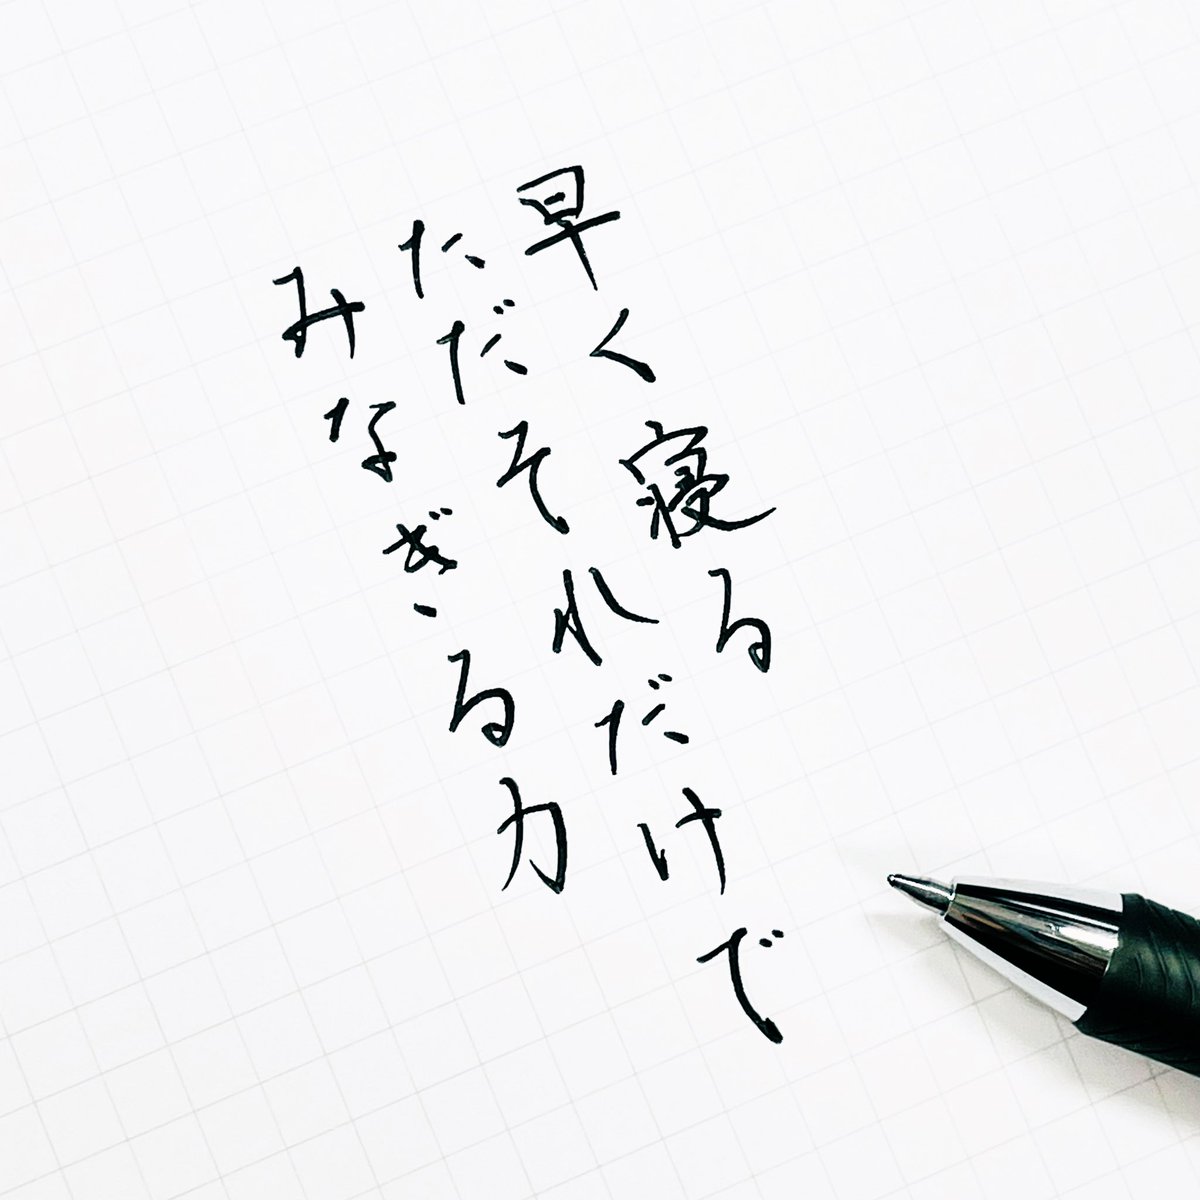 早く寝る
ただそれだけで
みなぎる力